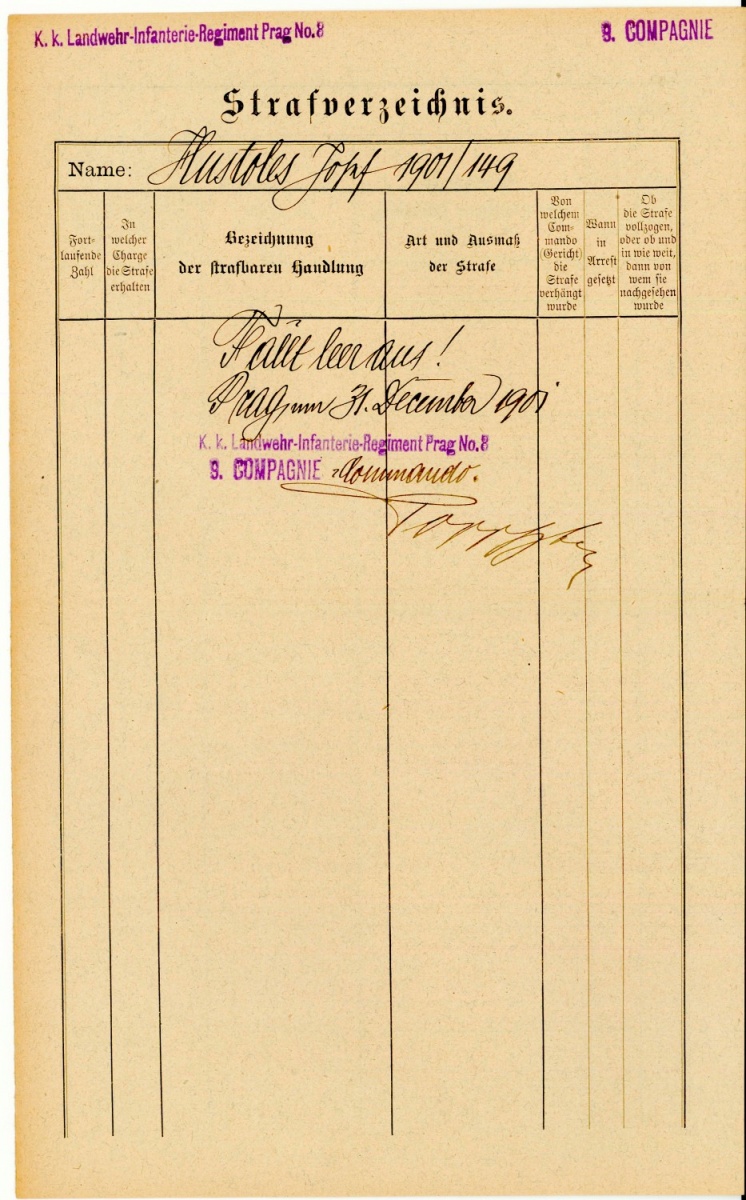 K. k. Landwehr-Infanterie-Regiment Prag No. 8
9. COMPAGNIE
Strafverzeichnis.
Name: Hustoles Josef 1901/149
Fort-
laufende
Zahl
In
welcher
Charge
die Strafe
erhalten
Bezeichnung
der strafbaren Handlung
Art und Ausmaß
der Strafe
Von
welchem
Com-
mando
(Gericht)
die
Strafe
verhängt
wurde
Wann
in
Arrest
gesetzt
Ob
die Strafe
vollzogen,
oder ob und
in wie weit,
dann von
wem sie
nachgesehen
wurde
Fällt leer aus!
Prag, am 31. December 1901
K. k. Landwehr-Infanterie-Regiment Prag No. 8
9. COMPAGNIE -Commando.